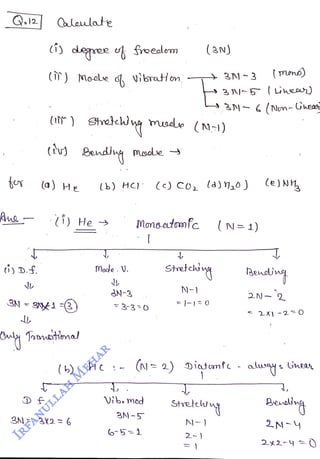 Q.12 Calculate
(i) degree of freedom (3N)
(ii) Mode of Vibration → 3N-3 (mono)
→ 3N-5 (Linear)
→ 3N-6 (Non-Linear
(iii) Stretching mode (N-1)
(iv) Bending mode →
for (a) He (b) HCl (c) CO2 (d) H2O (e) NH3
Ans - (i) He → Monoatomic (N=1)
(i) D.f. Mode. V. Stretching Bending
3N-3 N-1 2N-2
3N = 3×1 = 3 = 3-3=0 = 1-1=0 = 2×1-2=0
Only Transitional
(b) HC :- (N=2) Diatomic - always Linear
D f. Vib. mod Stretching Bending
3N = 3×2 = 6 3N-5 N-1 2N-4
6-5=1 2-1 2×2-4=0
= 1
IRFANULLAH MEHAR